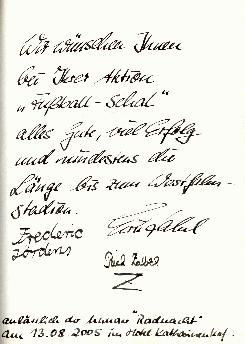 Wir wünschen Ihnen
bei Ihrer Aktion
"Fußball-Schal"
alles Gute, viel Erfolg
und mindestens die
Länge bis zum Westfalen-
stadion.
Frederic
Jordens
Rick Zabel
Z
anlässlich der Unnaer "Radnacht"
am 13.08.2005 im Hotel Katharinenhof.